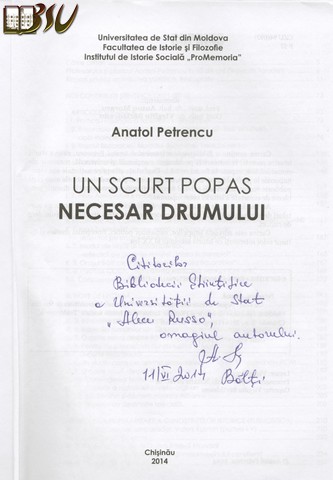 BSU
Universitatea de Stat din Moldova
Facultatea de Istorie și Filozofie
Institutul de Istorie Socială „ProMemoria”
Anatol Petrencu
UN SCURT POPAS
NECESAR DRUMULUI
Cititorilor
Bibliotecii Științifice
a Universității de Stat
„Alecu Russo”,
omagiul autorului.
11/VI 2014 Bălți
Chișinău
2014